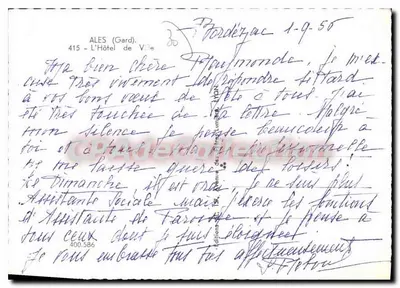 ALES (Gard).
415 - L'Hôtel de Ville
Bordezac 1-9-56
Ma bien chère Raymonde, je m'ex-
cuse très vivement de répondre si tard
à vos bons vœux de fête à tous. J'ai
été très touchée de ta lettre. Malgré
mon silence je pense beaucoup à
toi et à tous.
me laisse guère de loisirs!
Le Dimanche, il est vrai, je ne suis plus
Assistante Sociale mais j'exerce les fonctions
d'Assistante de Paroisse et je pense à
tous ceux dont je suis éloignée.
Je vous embrasse tous très affectueusement
400.586